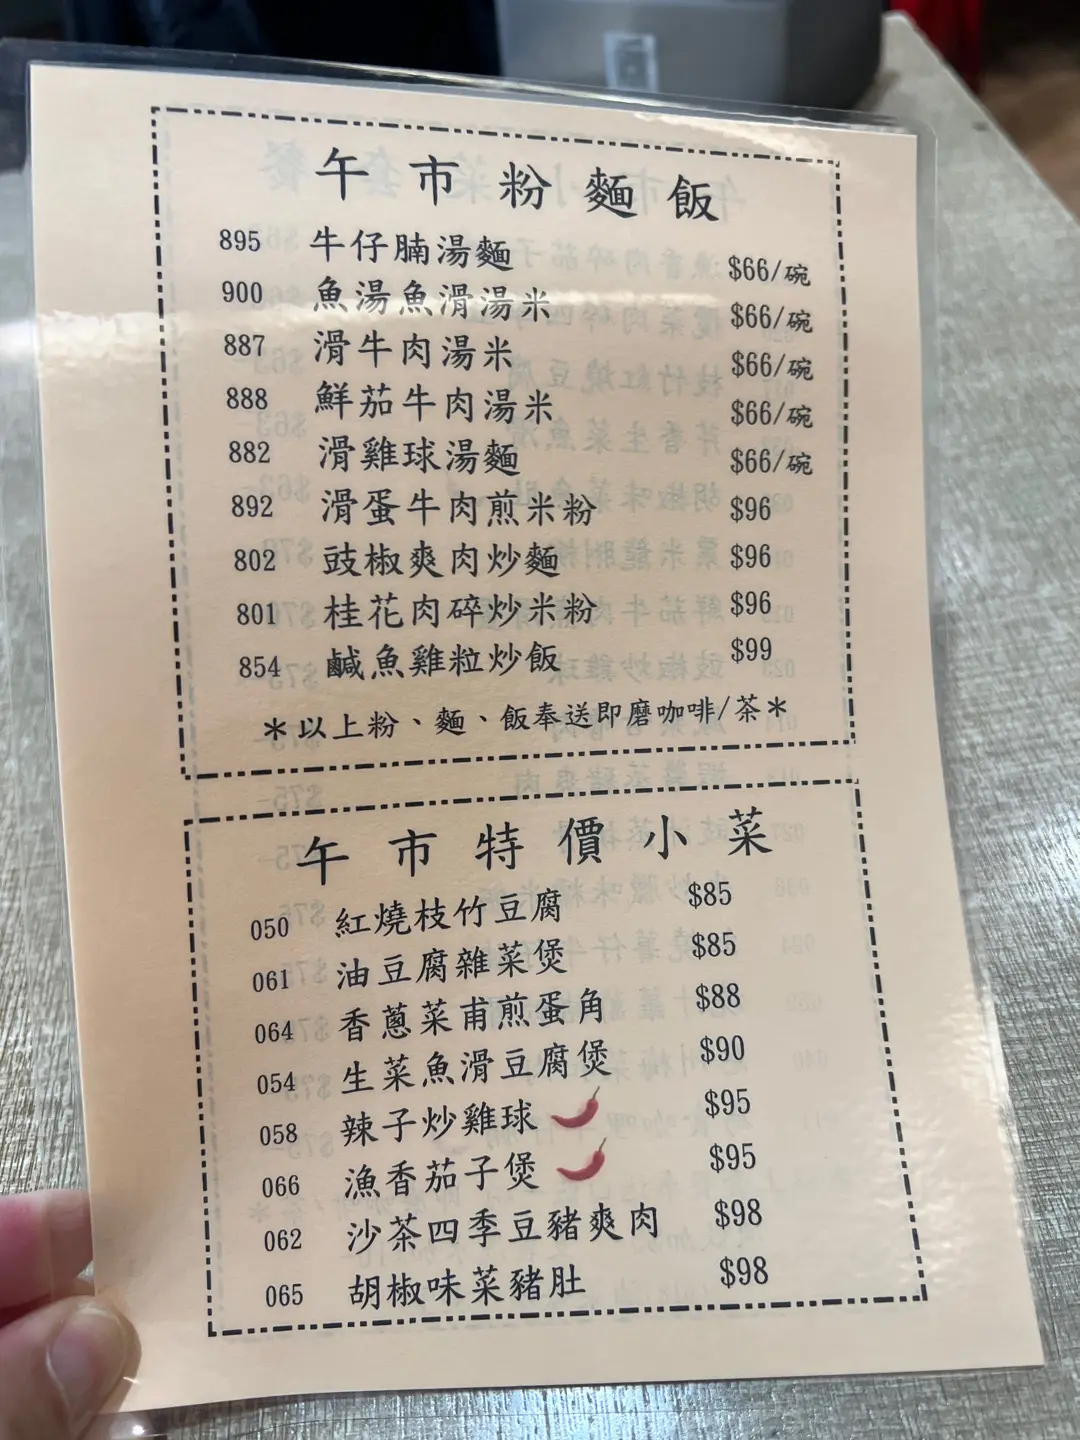 午市粉麵飯
895 牛仔腩湯麵 $66/碗
900 魚湯魚滑湯米 $66/碗
887 滑牛肉湯米 $66/碗
888 鮮茄牛肉湯米 $66/碗
882 滑雞球湯麵 $66/碗
892 滑蛋牛肉煎米粉 $96
802 豉椒爽肉炒麵 $96
801 桂花肉碎炒米粉 $96
854 鹹魚雞粒炒飯 $99
*以上粉、麵、飯奉送即磨咖啡/茶*
午市特價小菜
050 紅燒枝竹豆腐 $85
061 油豆腐雜菜煲 $85
064 香蔥菜甫煎蛋角 $88
054 生菜魚滑豆腐煲 $90
058 辣子炒雞球 $95
066 漁香茄子煲 $95
062 沙茶四季豆豬爽肉 $98
065 胡椒味菜豬肚 $98